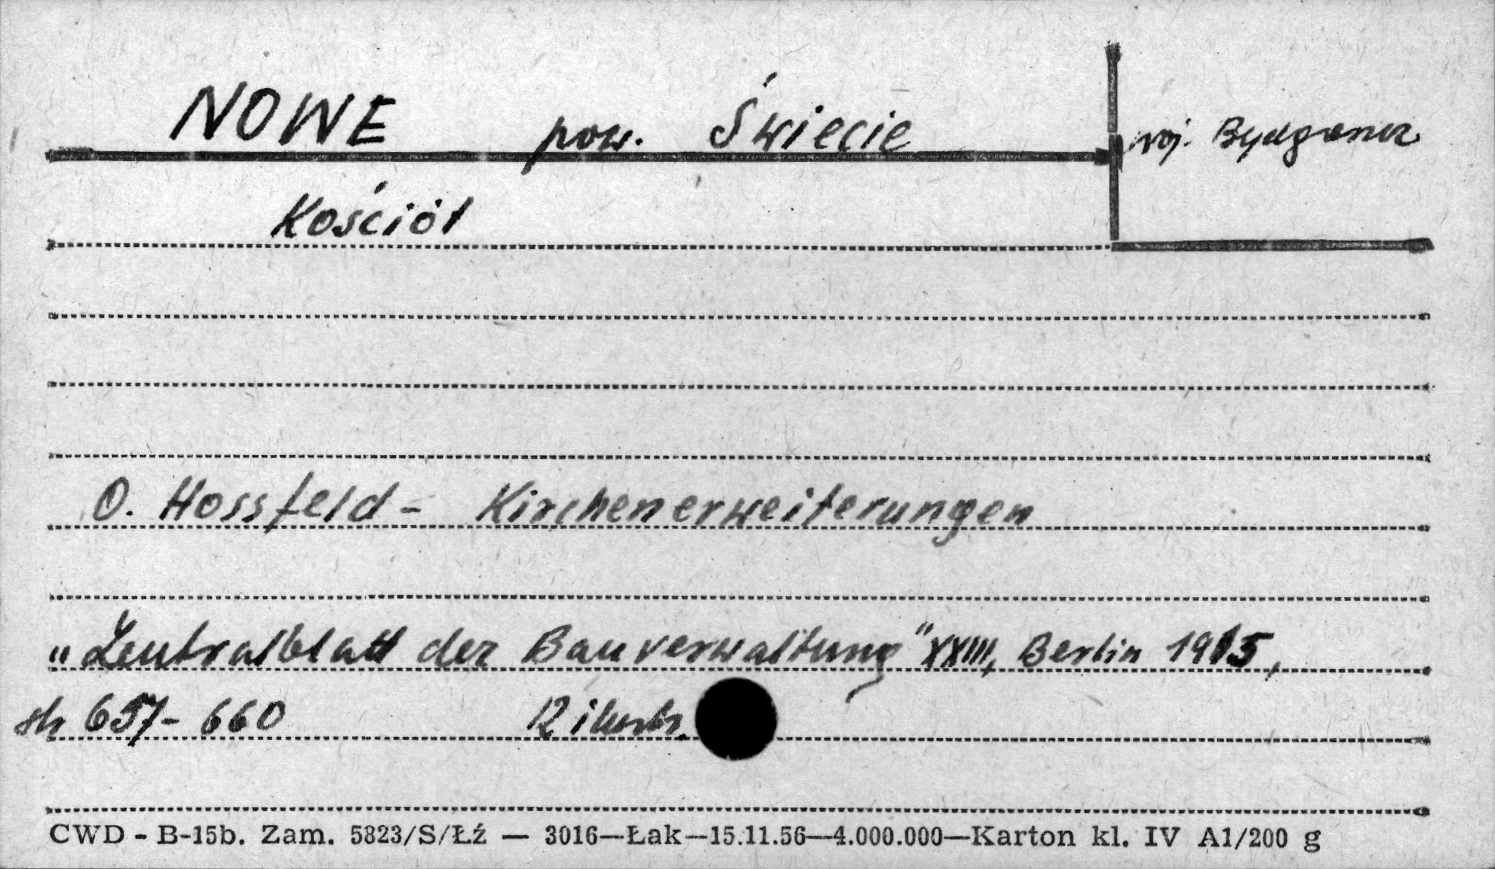 NOWE pow. Świecie woj. Bydgoszcz
Kościół
O. Hossfeld - Kirchenerweiterungen
„Zentralblatt der Bauverwaltung" XXIII, Berlin 1915,
str 657- 660 12 ilustr.
CWD - B-15b. Zam. 5823/S/Łź — 3016—Łak—15.11.56—4.000.000—Karton kl. IV A1/200 g